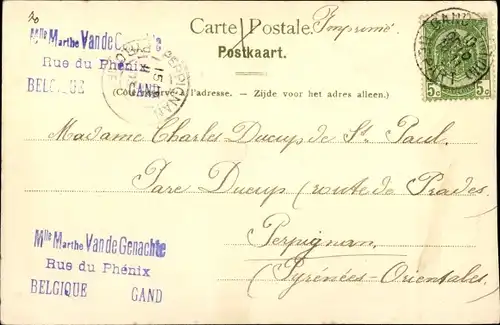 Carte Postale. Imprimé.
Postkaart.
Mlle Marthe Van de Genachte
Rue du Phénix
BELGIQUE GAND
PERPIGNAN
GAND
5c 5c
(Côté réservé à l'adresse. - Zijde voor het adres alleen.)
Madame Charles Ducup de St Paul.
Parc Ducup (route de Prades
Perpignan.
(Pyrénées-Orientales.
Mlle Marthe Van de Genachte
Rue du Phénix
BELGIQUE GAND